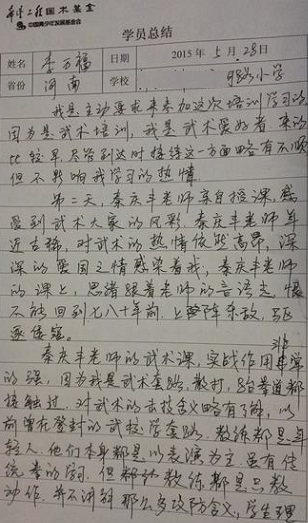 希望工程国术基金
中国青少年发展基金会
学员总结
姓名 李万福 日期 2015年5月28日
省份 河南 学校 明路小学
我是主动要求来参加这次培训学习的
因为是武术培训,我是武术爱好者,来的
比较早,尽管到达时接待这一方面略有不顺
但不影响我学习的热情.
第二天,秦庆丰老师亲自授课,感
受到武术大家的风彩.秦庆丰老师年
近古稀,对武术的热情依然高昂,深
深的爱国之情感染着我,秦庆丰老师
的课上,思绪跟着老师的言语走,恨
不能回到七八十年前,上阵杀敌,驱
逐倭寇.
秦庆丰老师的武术课,实战作用非常
的强,因为我是武术套路,散打,跆拳道都
接触过,对武术的击技含义略有了解,以
前曾在登封的武校学套路,教练都是年
轻人,他们本身都是以表演为主,虽有传
统拳的 但 教练都是只教
动作,并不讲解那么多攻防含义,学生理